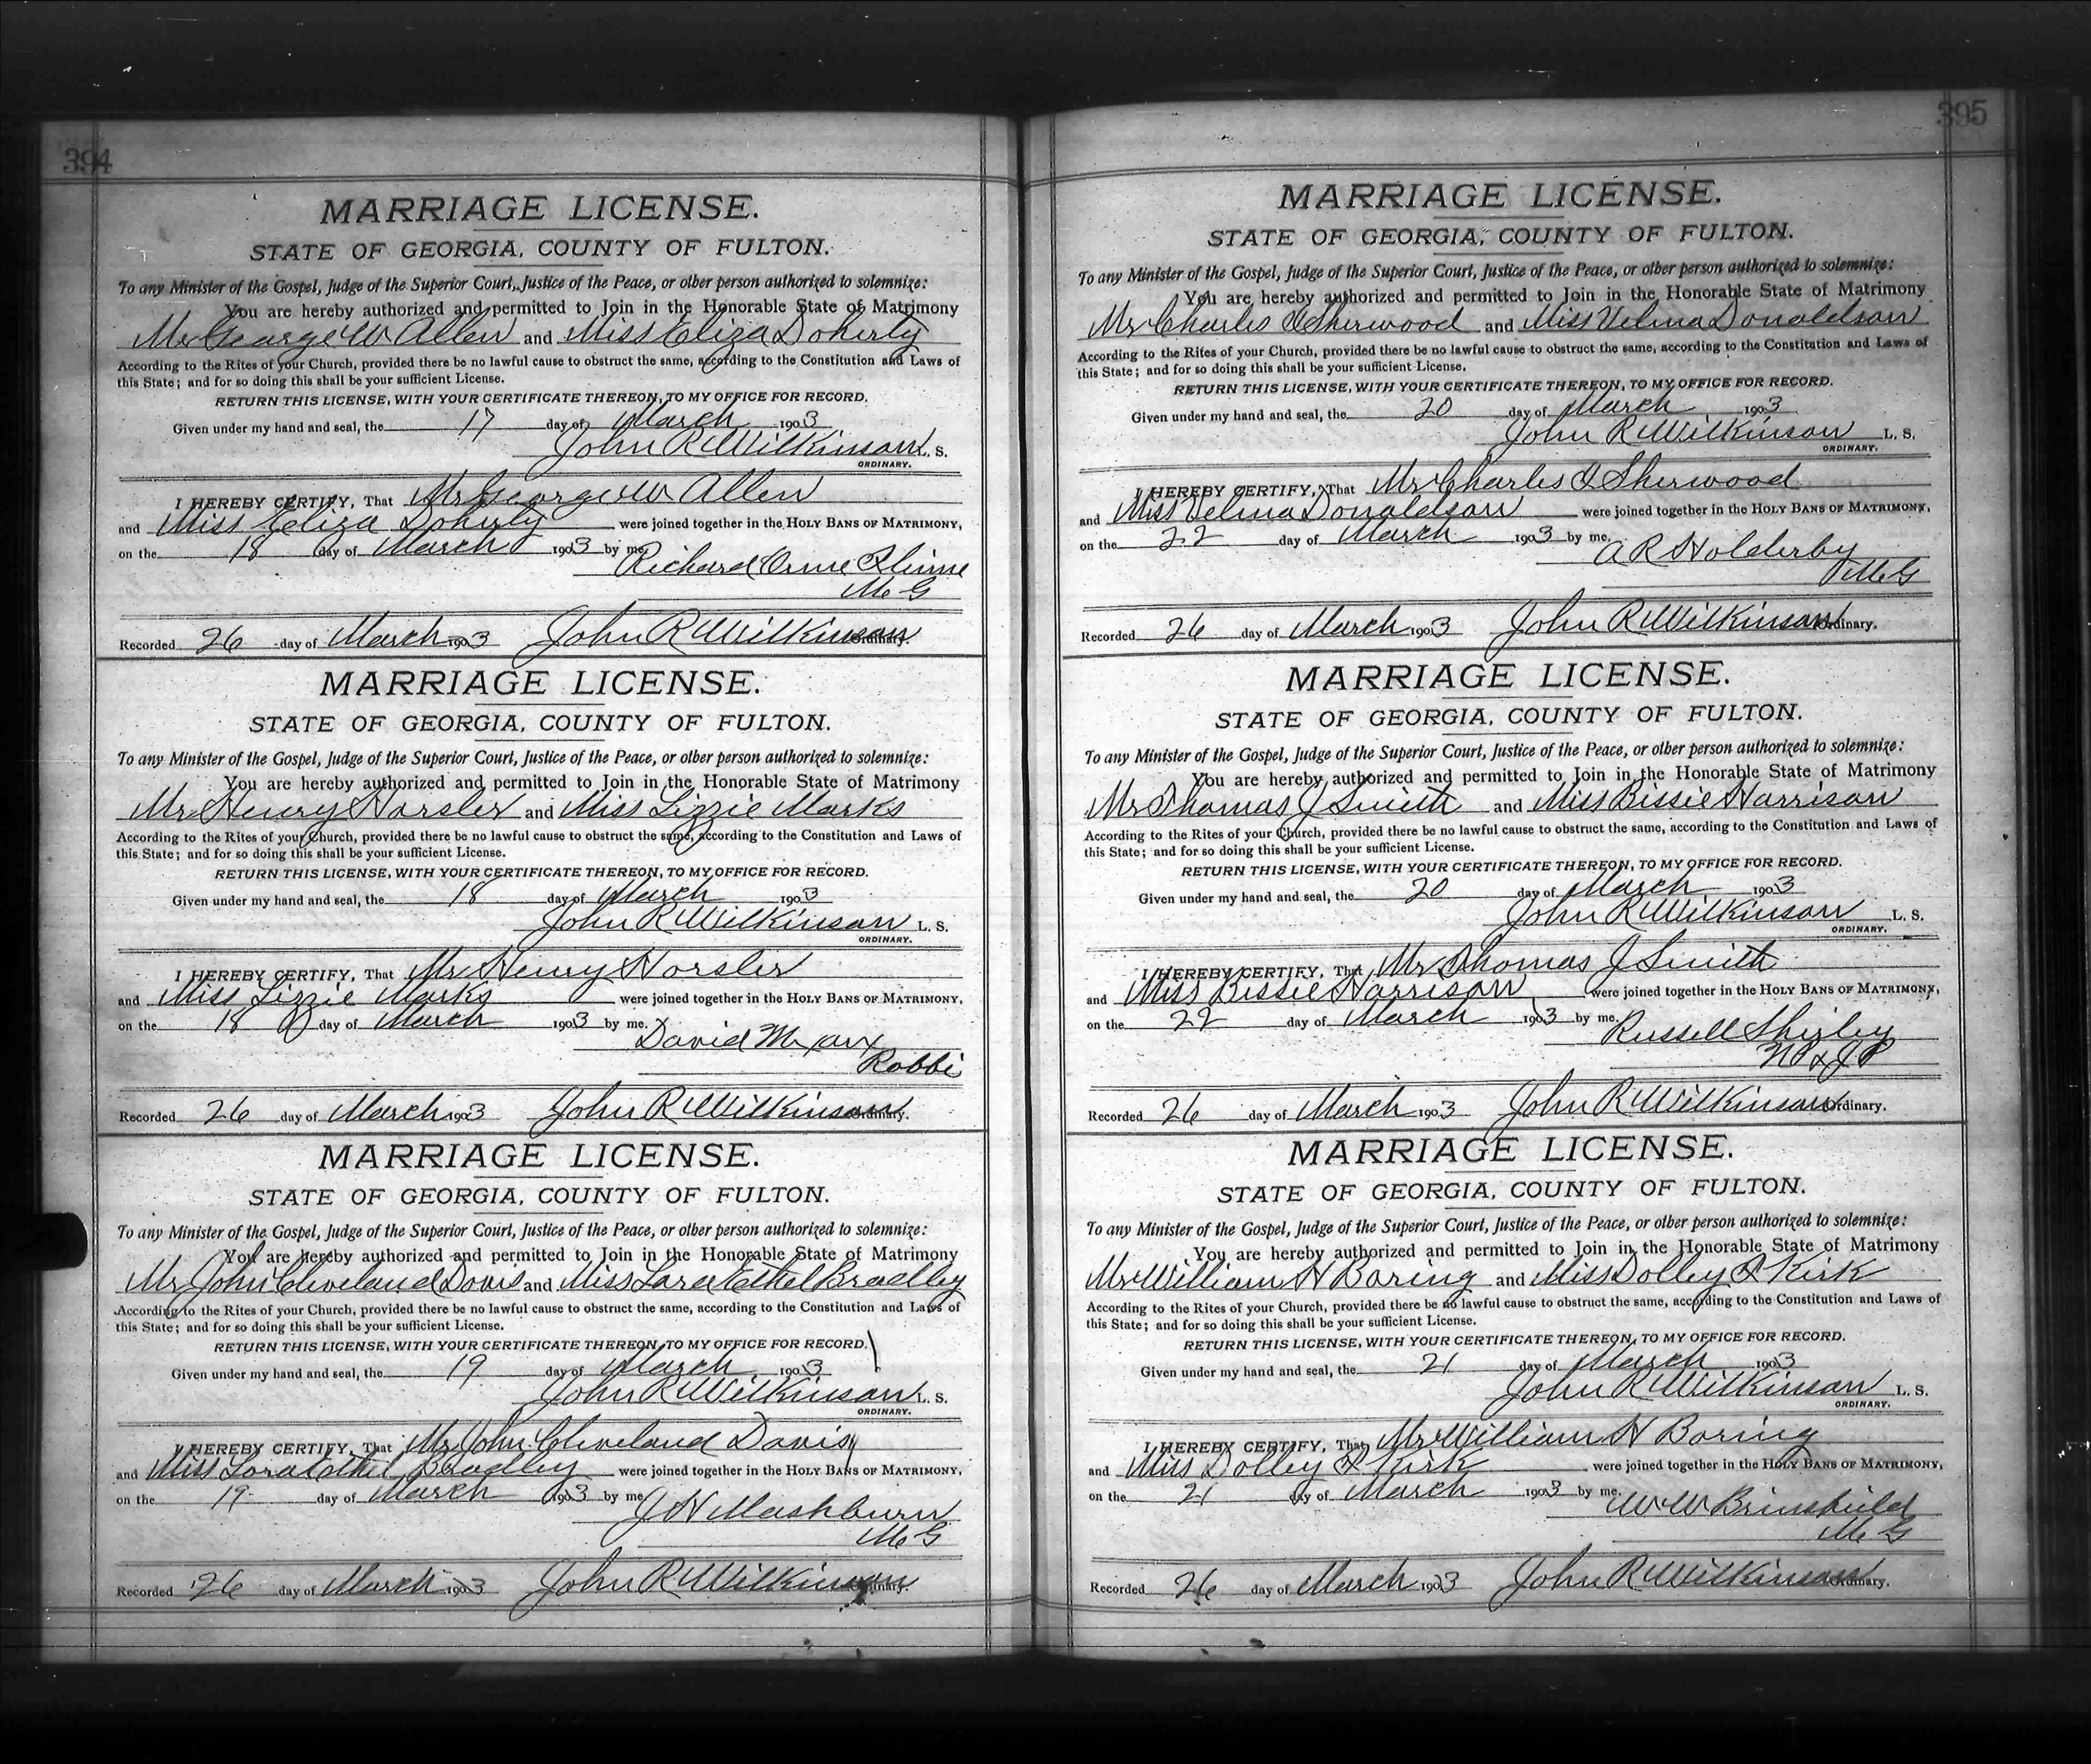 394
MARRIAGE LICENSE.
STATE OF GEORGIA, COUNTY OF FULTON.
To any Minister of the Gospel, Judge of the Superior Court, Justice of the Peace, or other person authorized to solemnize:
You are hereby authorized and permitted to Join in the Honorable State of Matrimony
Mr George W Allen and Miss Eliza Doherty
According to the Rites of your Church, provided there be no lawful cause to obstruct the same, according to the Constitution and Laws of
this State; and for so doing this shall be your sufficient License.
RETURN THIS LICENSE, WITH YOUR CERTIFICATE THEREON, TO MY OFFICE FOR RECORD.
Given under my hand and seal, the 17 day of March 1903
John R Wilkinson L. S.
ORDINARY.
I HEREBY CERTIFY, That Mr George W Allen
and Miss Eliza Doherty were joined together in the HOLY BANS OF MATRIMONY,
on the 18 day of March 1903 by me,
Richard Orme Flinne
M G
Recorded 26 day of March 1903 John R Wilkinson Ordinary.
MARRIAGE LICENSE.
STATE OF GEORGIA, COUNTY OF FULTON.
To any Minister of the Gospel, Judge of the Superior Court, Justice of the Peace, or other person authorized to solemnize:
You are hereby authorized and permitted to Join in the Honorable State of Matrimony
Mr Henry Horsler and Miss Lizzie Marks
According to the Rites of your Church, provided there be no lawful cause to obstruct the same, according to the Constitution and Laws of
this State; and for so doing this shall be your sufficient License.
RETURN THIS LICENSE, WITH YOUR CERTIFICATE THEREON, TO MY OFFICE FOR RECORD.
Given under my hand and seal, the 18 day of March 1903
John R Wilkinson L. S.
ORDINARY.
I HEREBY CERTIFY, That Mr Henry Horsler
and Miss Lizzie Marks were joined together in the HOLY BANS OF MATRIMONY,
on the 18 day of March 1903 by me,
David Marx
Rabbi
Recorded 26 day of March 1903 John R Wilkinson Ordinary.
MARRIAGE LICENSE.
STATE OF GEORGIA, COUNTY OF FULTON.
To any Minister of the Gospel, Judge of the Superior Court, Justice of the Peace, or other person authorized to solemnize:
You are hereby authorized and permitted to Join in the Honorable State of Matrimony
Mr John Cleveland Davis and Miss Lora Ethel Bradley
According to the Rites of your Church, provided there be no lawful cause to obstruct the same, according to the Constitution and Laws of
this State; and for so doing this shall be your sufficient License.
RETURN THIS LICENSE, WITH YOUR CERTIFICATE THEREON, TO MY OFFICE FOR RECORD.
Given under my hand and seal, the 19 day of March 1903
John R Wilkinson L. S.
ORDINARY.
I HEREBY CERTIFY, That Mr John Cleveland Davis
and Miss Lora Ethel Bradley were joined together in the HOLY BANS OF MATRIMONY,
on the 19 day of March 1903 by me
J H Mashburn
M G
Recorded 26 day of March 1903 John R Wilkinson Ordinary.
395
MARRIAGE LICENSE.
STATE OF GEORGIA, COUNTY OF FULTON.
To any Minister of the Gospel, Judge of the Superior Court, Justice of the Peace, or other person authorized to solemnize:
You are hereby authorized and permitted to Join in the Honorable State of Matrimony
Mr Charles I Sherwood and Miss Velma Donaldson
According to the Rites of your Church, provided there be no lawful cause to obstruct the same, according to the Constitution and Laws of
this State; and for so doing this shall be your sufficient License.
RETURN THIS LICENSE, WITH YOUR CERTIFICATE THEREON, TO MY OFFICE FOR RECORD.
Given under my hand and seal, the 20 day of March 1903
John R Wilkinson L. S.
ORDINARY.
I HEREBY CERTIFY, That Mr Charles I Sherwood
and Miss Velma Donaldson were joined together in the HOLY BANS OF MATRIMONY,
on the 22 day of March 1903 by me,
A R Holderby
M G
Recorded 26 day of March 1903 John R Wilkinson Ordinary.
MARRIAGE LICENSE.
STATE OF GEORGIA, COUNTY OF FULTON.
To any Minister of the Gospel, Judge of the Superior Court, Justice of the Peace, or other person authorized to solemnize:
You are hereby authorized and permitted to Join in the Honorable State of Matrimony
Mr Thomas J Smith and Miss Bissie Harrison
According to the Rites of your Church, provided there be no lawful cause to obstruct the same, according to the Constitution and Laws of
this State; and for so doing this shall be your sufficient License.
RETURN THIS LICENSE, WITH YOUR CERTIFICATE THEREON, TO MY OFFICE FOR RECORD.
Given under my hand and seal, the 20 day of March 1903
John R Wilkinson L. S.
ORDINARY.
I HEREBY CERTIFY, That Mr Thomas J Smith
and Miss Bissie Harrison were joined together in the HOLY BANS OF MATRIMONY,
on the 22 day of March 1903 by me,
Russell Shigley
NP & JP
Recorded 26 day of March 1903 John R Wilkinson Ordinary.
MARRIAGE LICENSE.
STATE OF GEORGIA, COUNTY OF FULTON.
To any Minister of the Gospel, Judge of the Superior Court, Justice of the Peace, or other person authorized to solemnize:
You are hereby authorized and permitted to Join in the Honorable State of Matrimony
Mr William H Boring and Miss Dolley I Kirk
According to the Rites of your Church, provided there be no lawful cause to obstruct the same, according to the Constitution and Laws of
this State; and for so doing this shall be your sufficient License.
RETURN THIS LICENSE, WITH YOUR CERTIFICATE THEREON, TO MY OFFICE FOR RECORD.
Given under my hand and seal, the 21 day of March 1903
John R Wilkinson L. S.
ORDINARY.
I HEREBY CERTIFY, That Mr William H Boring
and Miss Dolley I Kirk were joined together in the HOLY BANS OF MATRIMONY,
on the 21 day of March 1903 by me.
W W Brinsfield
M G
Recorded 26 day of March 1903 John R Wilkinson Ordinary.